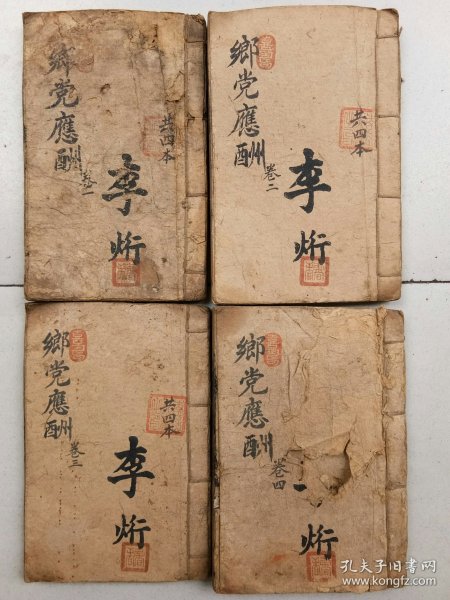 鄉党應酬
卷一
李烆
共四本
鄉党應酬
卷二
李烆
共四本
鄉党應酬
卷三
李烆
共四本
鄉党應酬
卷四
烆
孔夫子旧书网
www.kongfz.com